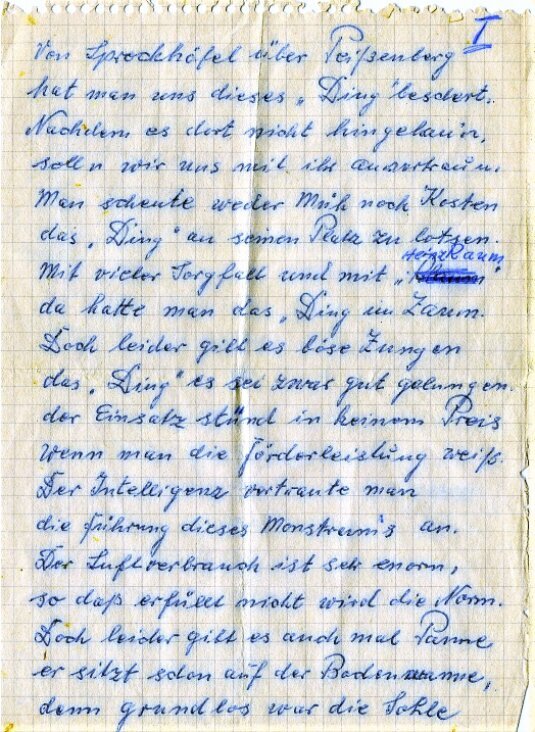 I
Von Sprockhöfel über Peißenberg
hat man uns dieses „Ding" beschert.
Nachdem es dort nicht hingehau'n,
soll'n wir uns mit ihr anvertraun.
Man scheute weder Müh noch Kosten
das „Ding" an seinen Platz zu lotsen.
Heinz Raum
Mit vieler Sorgfalt und mit „ "
da hatte man das „Ding im Zaum.
Doch leider gibt es böse Zungen
das „Ding" es sei zwar gut gelungen.
der Einsatz stünd in keinem Preis
wenn man die Förderleistung weiß.
Der Intelligenz vertraute man
die Führung dieses Monstrums an.
Der Luftverbrauch ist sehr enorm,
so daß erfüllt nicht wird die Norm.
Doch leider gibt es auch mal Panne
er sitzt schon auf der Bodenwanne,
denn grundlos war die Sohle